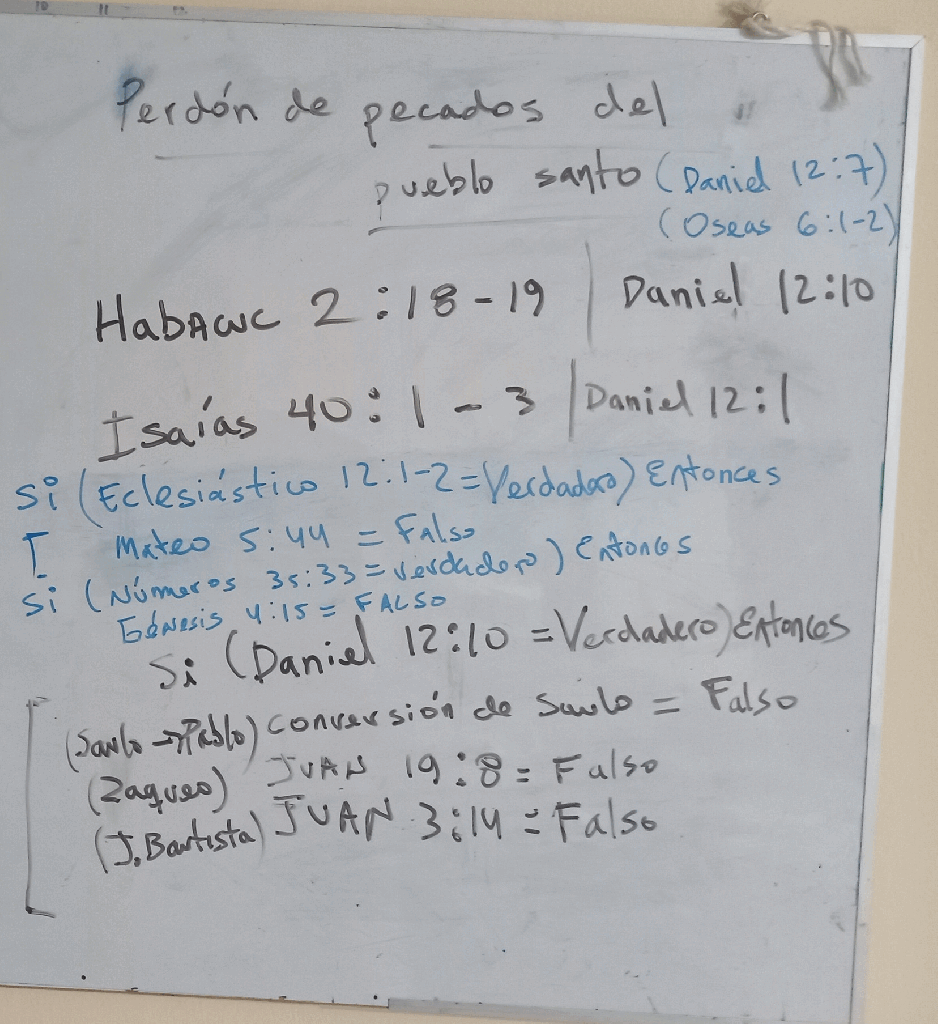 Perdón de pecados del
pueblo santo (Daniel 12:7)
(Oseas 6:1-2)
Habacuc 2:18-19 | Daniel 12:10
Isaías 40:1-3 | Daniel 12:1
Si (Eclesiástico 12:1-2=Verdadero) Entonces
[ Mateo 5:44 = Falso
Si (Números 35:33=verdadero) Entonces
Génesis 4:15 = FALSO
Si (Daniel 12:10 =Verdadero) Entonces
(Saulo→Pablo) conversión de Saulo = Falso
(Zaqueo) JUAN 19:8 = Falso
(J. Bautista) JUAN 3:14 = Falso